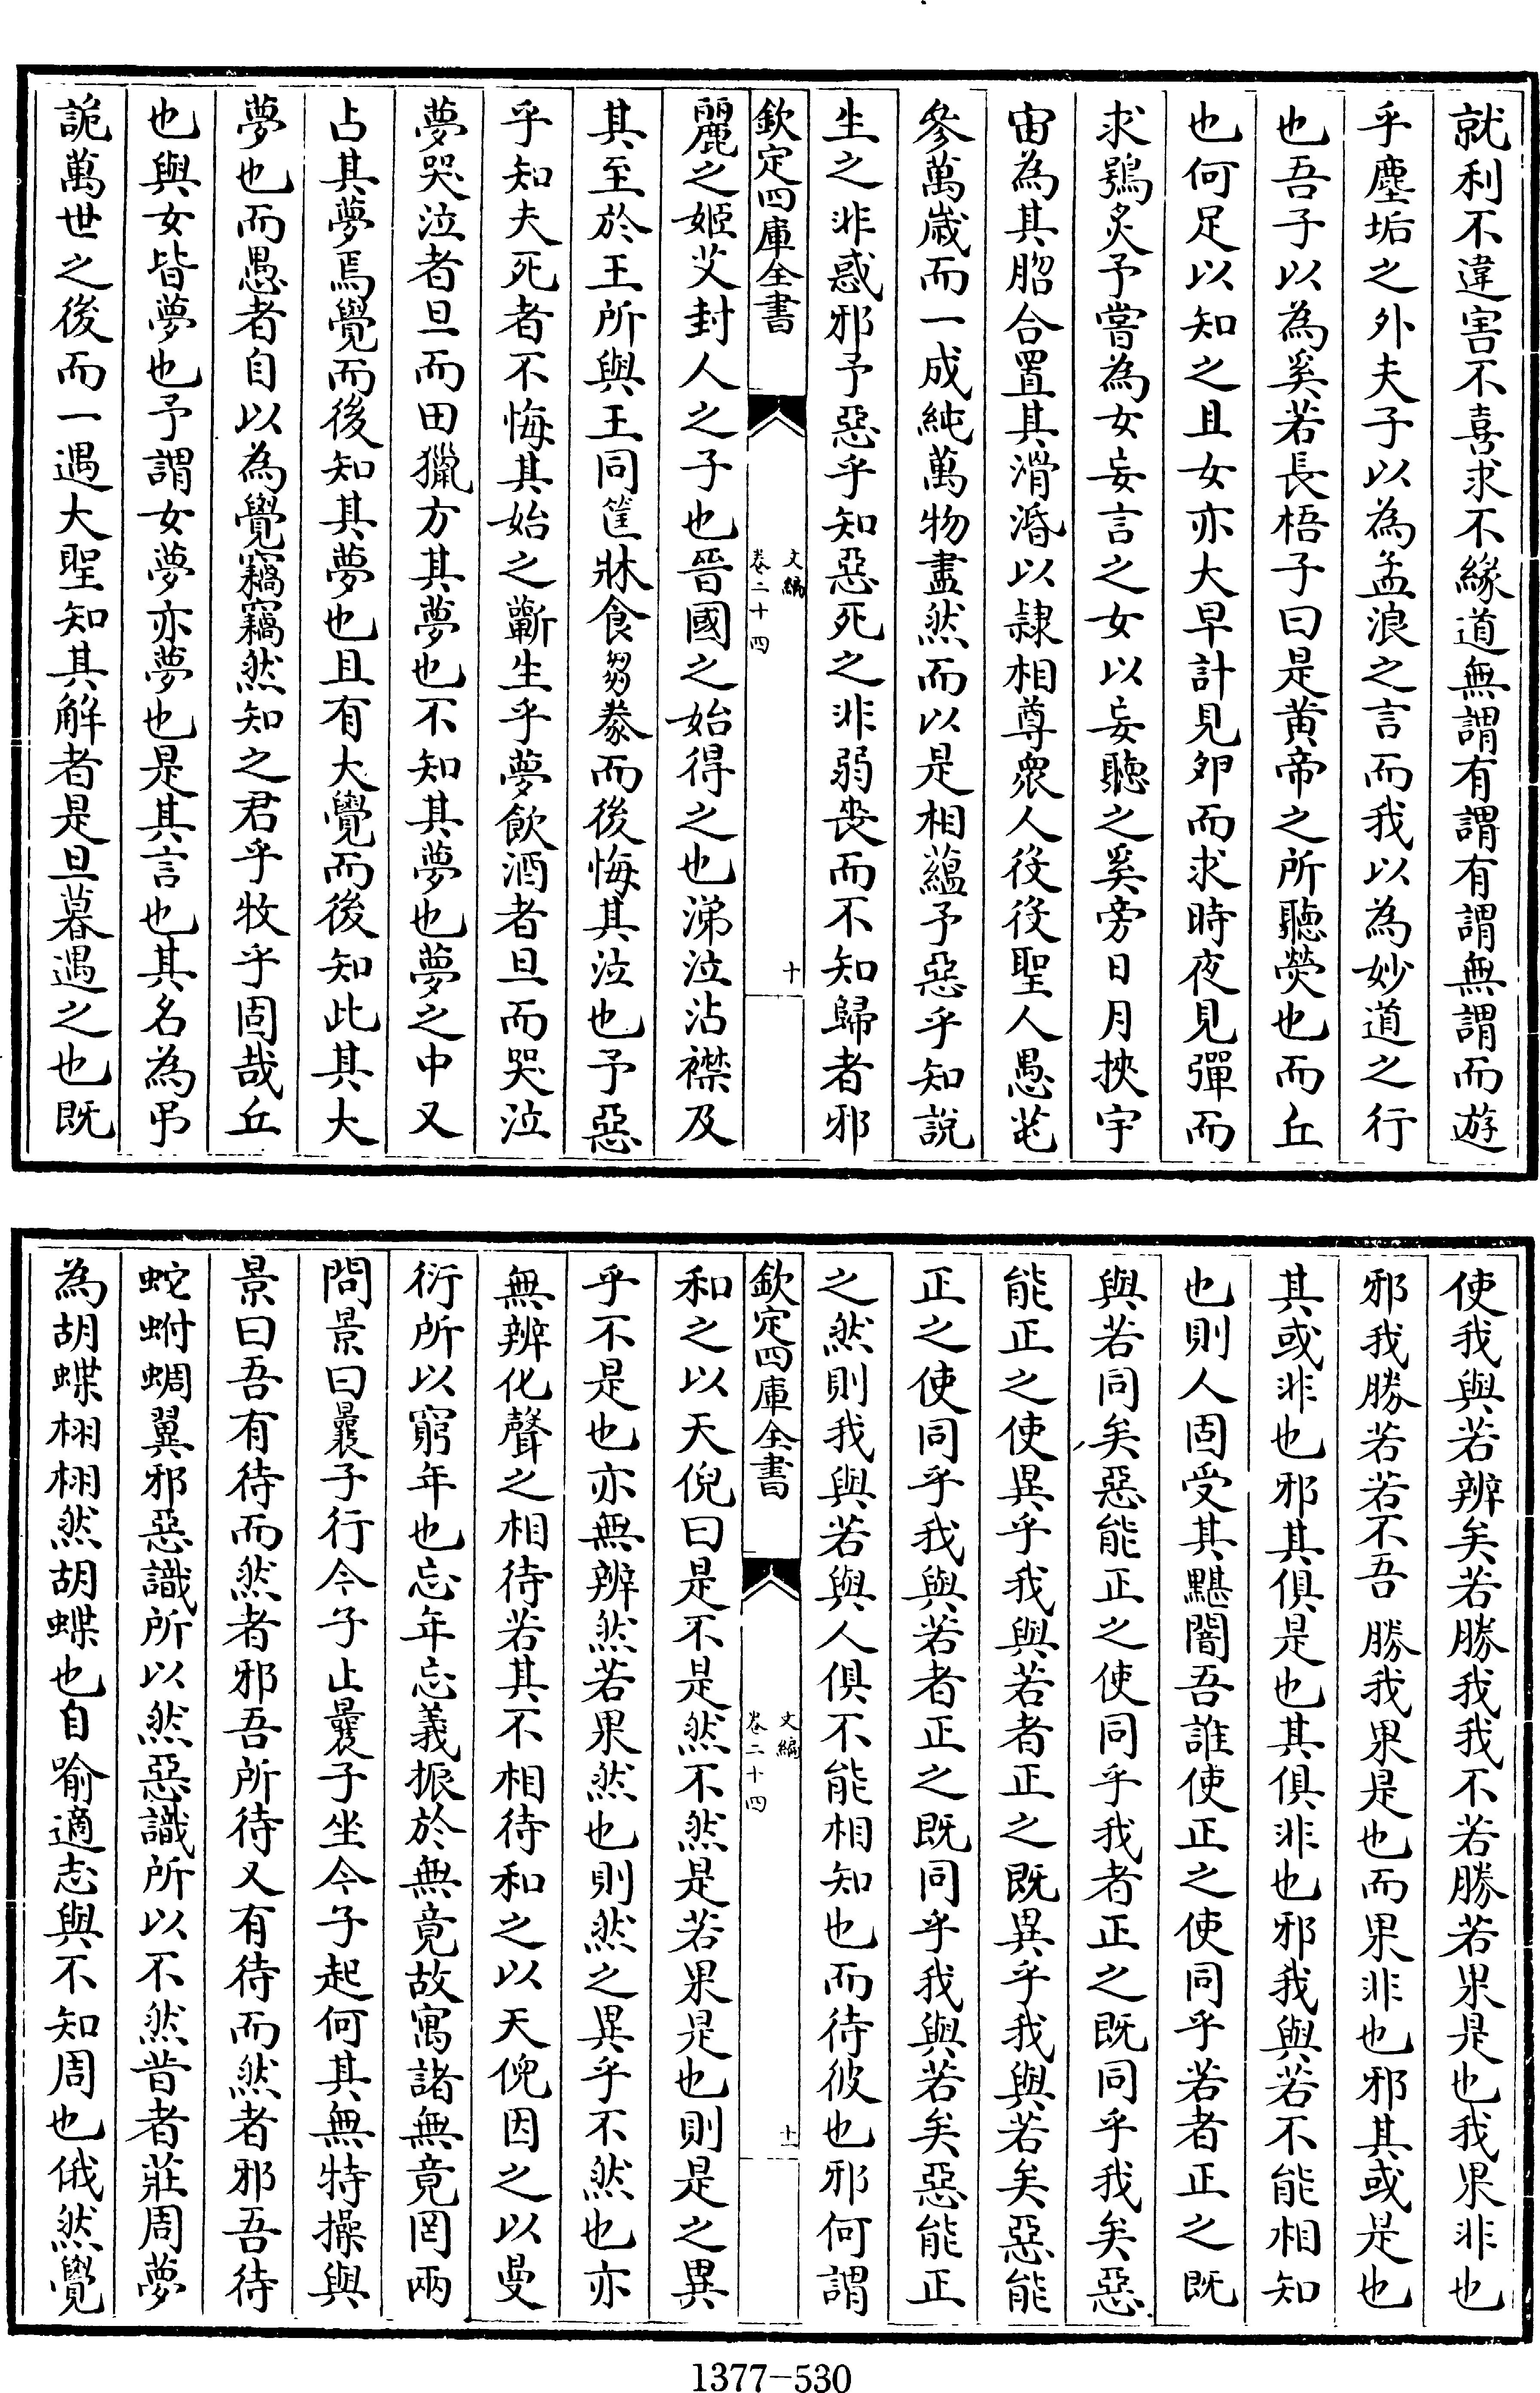 就利不違害不喜求不緣道無謂有謂有謂無謂而遊
乎塵垢之外夫子以為孟浪之言而我以為妙道之行
也吾子以為奚若長梧子曰是黄帝之所聽熒也而丘
也何足以知之且女亦大早計見卵而求時夜見彈而
求鴞炙予嘗為女妄言之女以妄聽之奚旁日月挾宇
宙為其脗合置其滑涽以隷相尊衆人役役聖人愚芚
參萬歳而一成純萬物盡然而以是相藴予惡乎知説
生之非惑邪予惡乎知惡死之非弱喪而不知歸者邪
欽定四庫全書
文編
卷二十四
十
麗之姬艾封人之子也晉國之始得之也涕泣沾襟及
其至於王所與王同筐牀食芻豢而後悔其泣也予惡
乎知夫死者不悔其始之蘄生乎夢飲酒者旦而哭泣
夢哭泣者旦而田獵方其夢也不知其夢也夢之中又
占其夢焉覺而後知其夢也且有大覺而後知此其大
夢也而愚者自以為覺竊竊然知之君乎牧乎固哉丘
也與女皆夢也予謂女夢亦夢也是其言也其名為弔
詭萬世之後而一遇大聖知其解者是旦暮遇之也既
使我與若辨矣若勝我我不若勝若果是也我果非也
邪我勝若若不吾勝我果是也而果非也邪其或是也
其或非也邪其俱是也其俱非也邪我與若不能相知
也則人固受其黮闇吾誰使正之使同乎若者正之既
與若同矣惡能正之使同乎我者正之既同乎我矣惡
能正之使異乎我與若者正之既異乎我與若矣惡能
正之使同乎我與若者正之既同乎我與若矣惡能正
之然則我與若與人俱不能相知也而待彼也邪何謂
欽定四庫全書
文編
卷二十四
十一
和之以天倪曰是不是然不然是若果是也則是之異
乎不是也亦無辨然若果然也則然之異乎不然也亦
無辨化聲之相待若其不相待和之以天倪因之以曼
衍所以窮年也忘年忘義振於無竟故寓諸無竟罔兩
問景曰曩子行今子止曩子坐今子起何其無特操與
景曰吾有待而然者邪吾所待又有待而然者邪吾待
蛇蚹蜩翼邪惡識所以然惡識所以不然昔者莊周夢
為胡蝶栩栩然胡蝶也自喻適志與不知周也俄然覺
1377-530